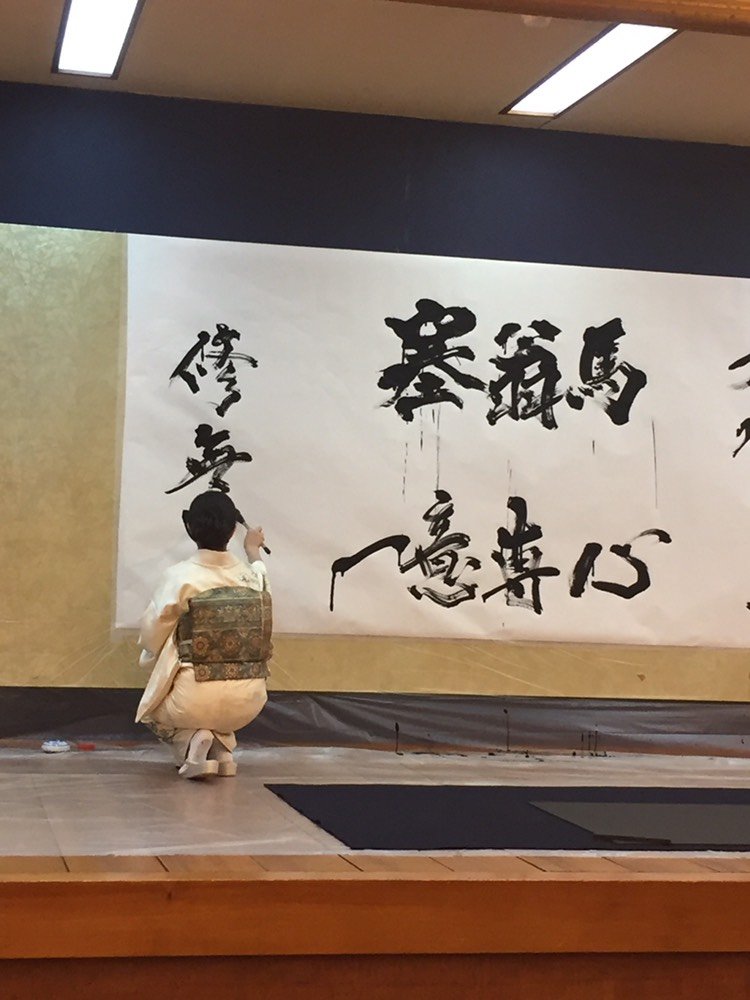 塞翁馬
一意専心
修無